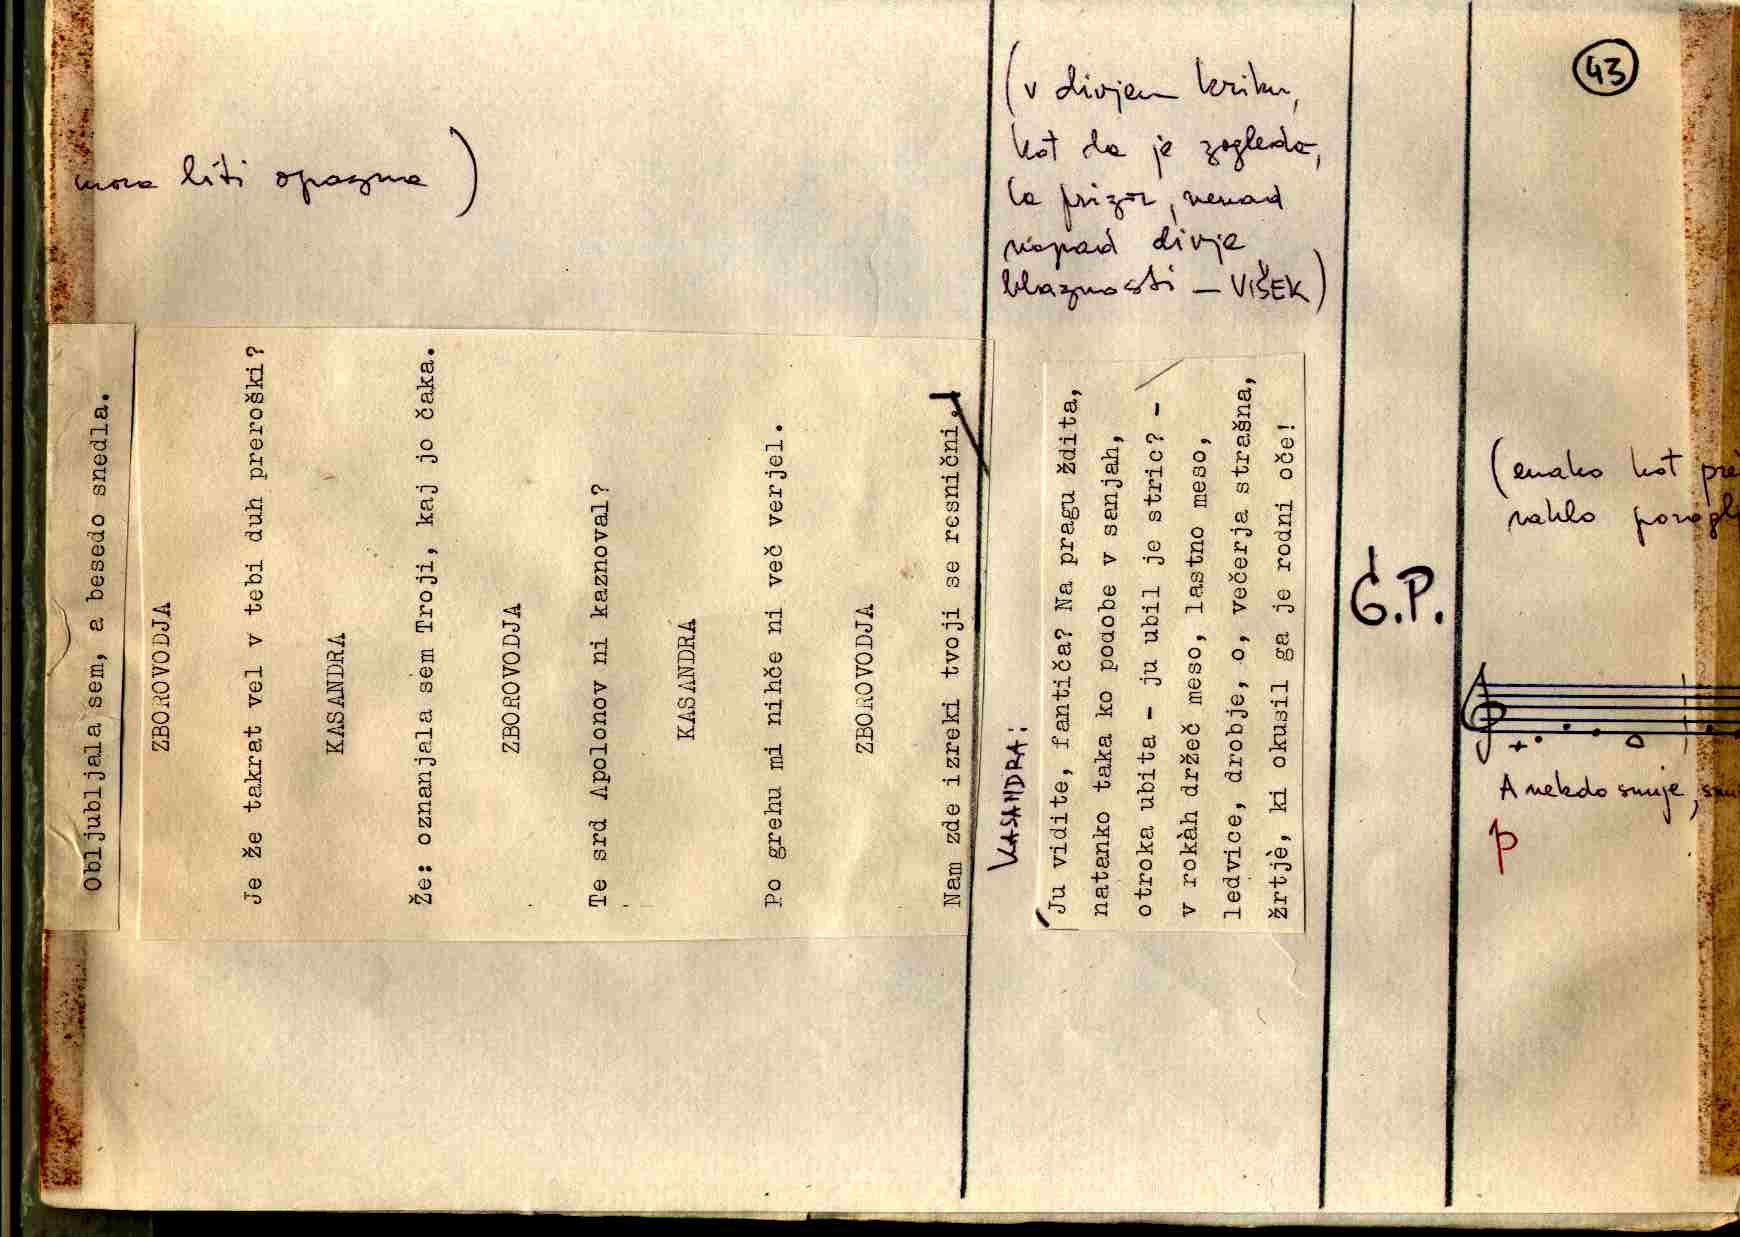 43
mora biti opazna)
Obljubljala sem, a besedo snedla.
ZBOROVODJA
Je že takrat vel v tebi duh preroški?
KASANDRA
Že: oznanjala sem Troji, kaj jo čaka.
ZBOROVODJA
Te srd Apolonov ni kaznoval?
KASANDRA
Po grehu mi nihče ni več verjel.
ZBOROVODJA
Nam zde izreki tvoji se resnični.
(v divjem kriku,
kot da je zagleda,
la prizor, nenad
napad divje
blaznosti – VIŠEK)
KASANDRA:
Ju vidite, fantiča? Na pragu ždita,
natanko taka ko podobe v sanjah,
otroka ubita - ju ubil je stric? -
v rokàh držeč meso, lastno meso,
ledvice, drobje, o, večerja strašna,
žrtjè, ki okusil ga je rodni oče!
G.P.
(enako kot pre
naklo
A nekdo snuje, snu
p